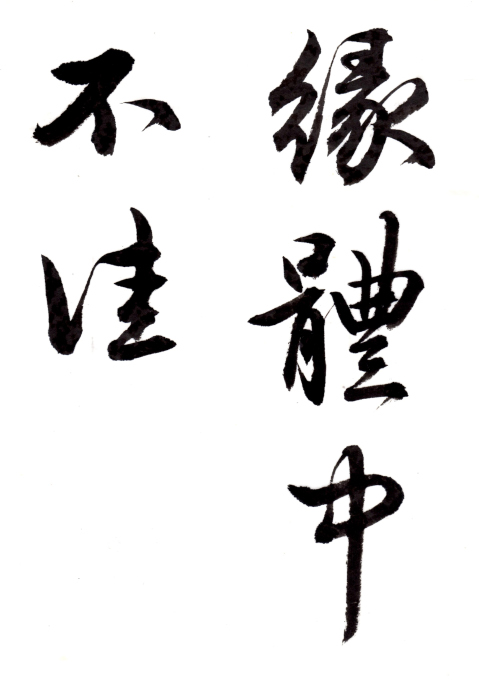 緣體中
不佳